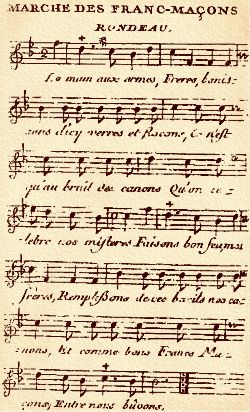 MARCHE DES FRANC-MAÇONS
RONDEAU.
La main aux armes, Freres, banis-
sons dicy verres et flacons, Ce n'est
qu'au bruit des canons Qu'on ce-
lebre nos misteres Faisons bon feu, mes
frères, Remplissons de ces barils nos ca-
nons, Et comme bons Francs Ma-
çons, Entre nous bûvons.